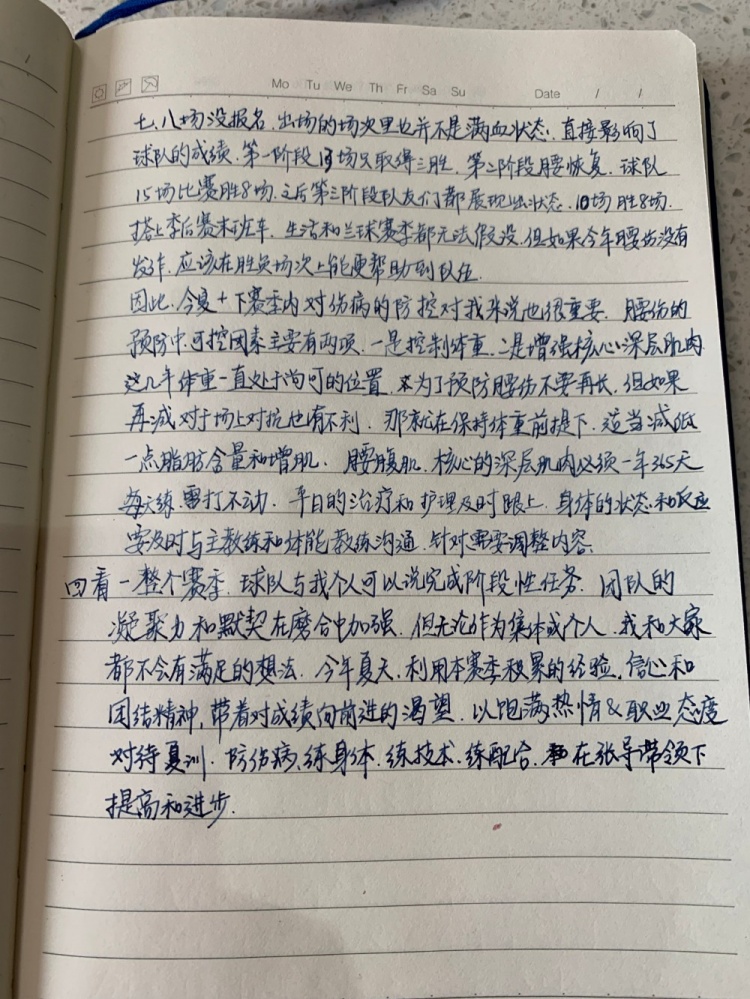 Mo Tu We Th Fr Sa Su Date / /
七、八场没报名,出场的场次里也并不是满血状态,直接影响了
球队的成绩.第一阶段13场只取得三胜.第二阶段腰恢复.球队
15场比赛胜8场.之后第三阶段队友们都展现出状态.10场胜8场.
搭上季后赛末班车.生活和兰球赛季都无法假设.但如果今年腰伤没有
发作.应该在胜负场次上能更帮助到队伍.
因此.今夏+下赛季内对伤病的防控对我来说也很重要.腰伤的
预防中.可控因素主要有两项.一是控制体重.二是增强核心深层肌肉
这几年体重一直处于尚可的位置.为了预防腰伤不要再长.但如果
再减对于场上对抗也有不利.那就在保持体重前提下.适当减低
一点脂肪含量和增肌.腰腹肌.核心的深层肌肉必须一年365天
每天练.雷打不动.平日的治疗和护理及时跟上.身体的状态和反应
要及时与主教练和体能教练沟通.针对需要调整内容.
四看一整个赛季.球队与我个人可以说完成阶段性任务.团队的
凝聚力和默契在磨合中加强.但无论作为集体或个人.我和大家
都不会有满足的想法.今年夏天.利用本赛季积累的经验.信心和
团结精神,带着对成绩向前进的渴望.以饱满热情&职业态度
对待夏训.防伤病、练身体.练技术.练配合.在张导带领下
提高和进步.